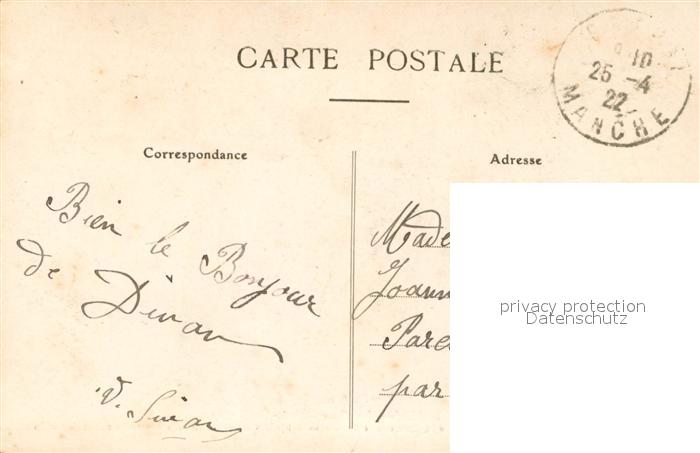 CARTE POSTALE
10
25 -4
22
MANCHE
Correspondance
Adresse
Bien le Bonjour
de Dinan
V.
Made
Joann
Pare
par
privacy protection
Datenschutz